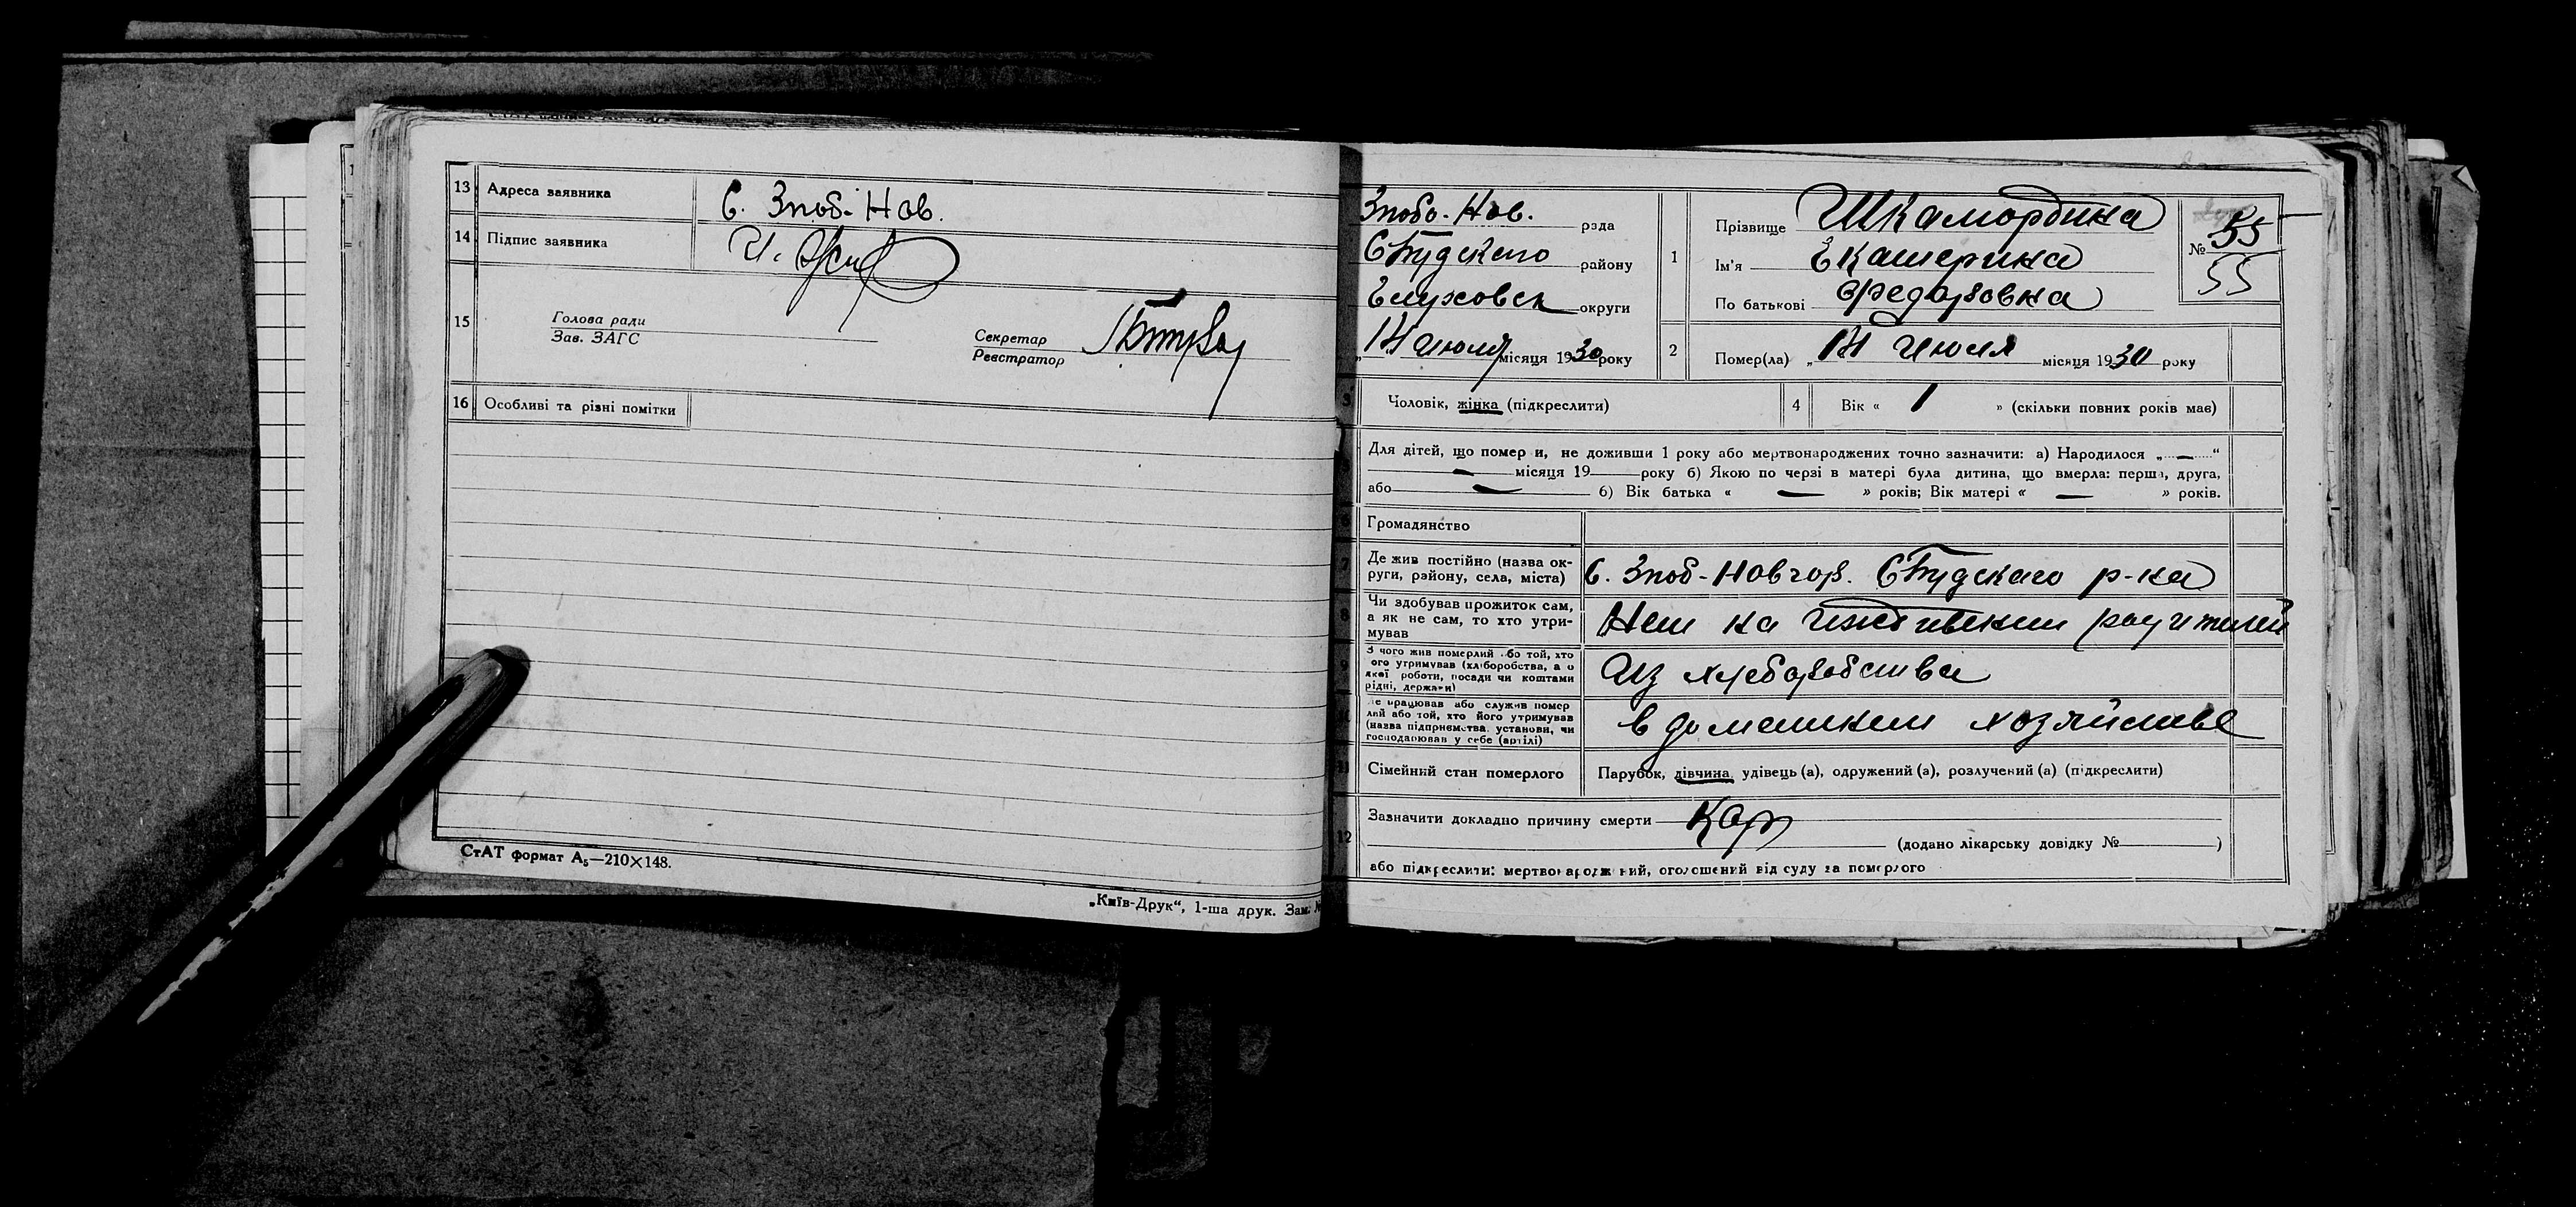 13 Адреса заявника С. Зноб-Нов.
14 Підпис заявника
15 Голова ради
Зав. ЗАГС
Секретар
Реєстратор
16 Особливі та різні помітки
СтАТ формат А₅—210×148.
„Київ-Друк“, 1-ша друк. Зам. №
Знобо-Нов. рада
СБудского району
Глуховск округи
„14 Июля місяця 1930 року
1 Прізвище Шкамордина
Ім'я Екатерина
По батькові Федоровна
№ 55
55
2 Помер(ла) „14 Июля місяця 1930 року
3 Чоловік, жінка (підкреслити)
4 Вік « 1 » (скільки повних років має)
Для дітей, що помер и, не доживши 1 року або мертвонароджених точно зазначити: а) Народилося „ — “
— місяця 19 року б) Якою по черзі в матері була дитина, що вмерла: перша, друга,
або — 6) Вік батька « — » років; Вік матері « — » років.
Громадянство
7 Де жив постійно (назва ок-
руги, району, села, міста) С. Зноб-Новгор. СБудского р-на
8 Чи здобував прожиток сам,
а як не сам, то хто утри-
мував Нет на иждивении родителей
9 З чого жив померлий або той, хто
ого утримував (хліборобства, а о
якої роботи, посади чи коштами
рідні, держави) Из хлеборобства
Де працював або служив помер
лий або той, хто його утримував
(назва підприємства, установи, чи
господарював у себе (артілі) в домашнем хозяйстве
11 Сімейний стан померлого Парубок, дівчина, удівець (а), одружений (а), розлучений (а) (підкреслити)
12 Зазначити докладно причину смерти Кор
(додано лікарську довідку № )
або підкреслити: мертвонароджений, оголошений від суду за померлого